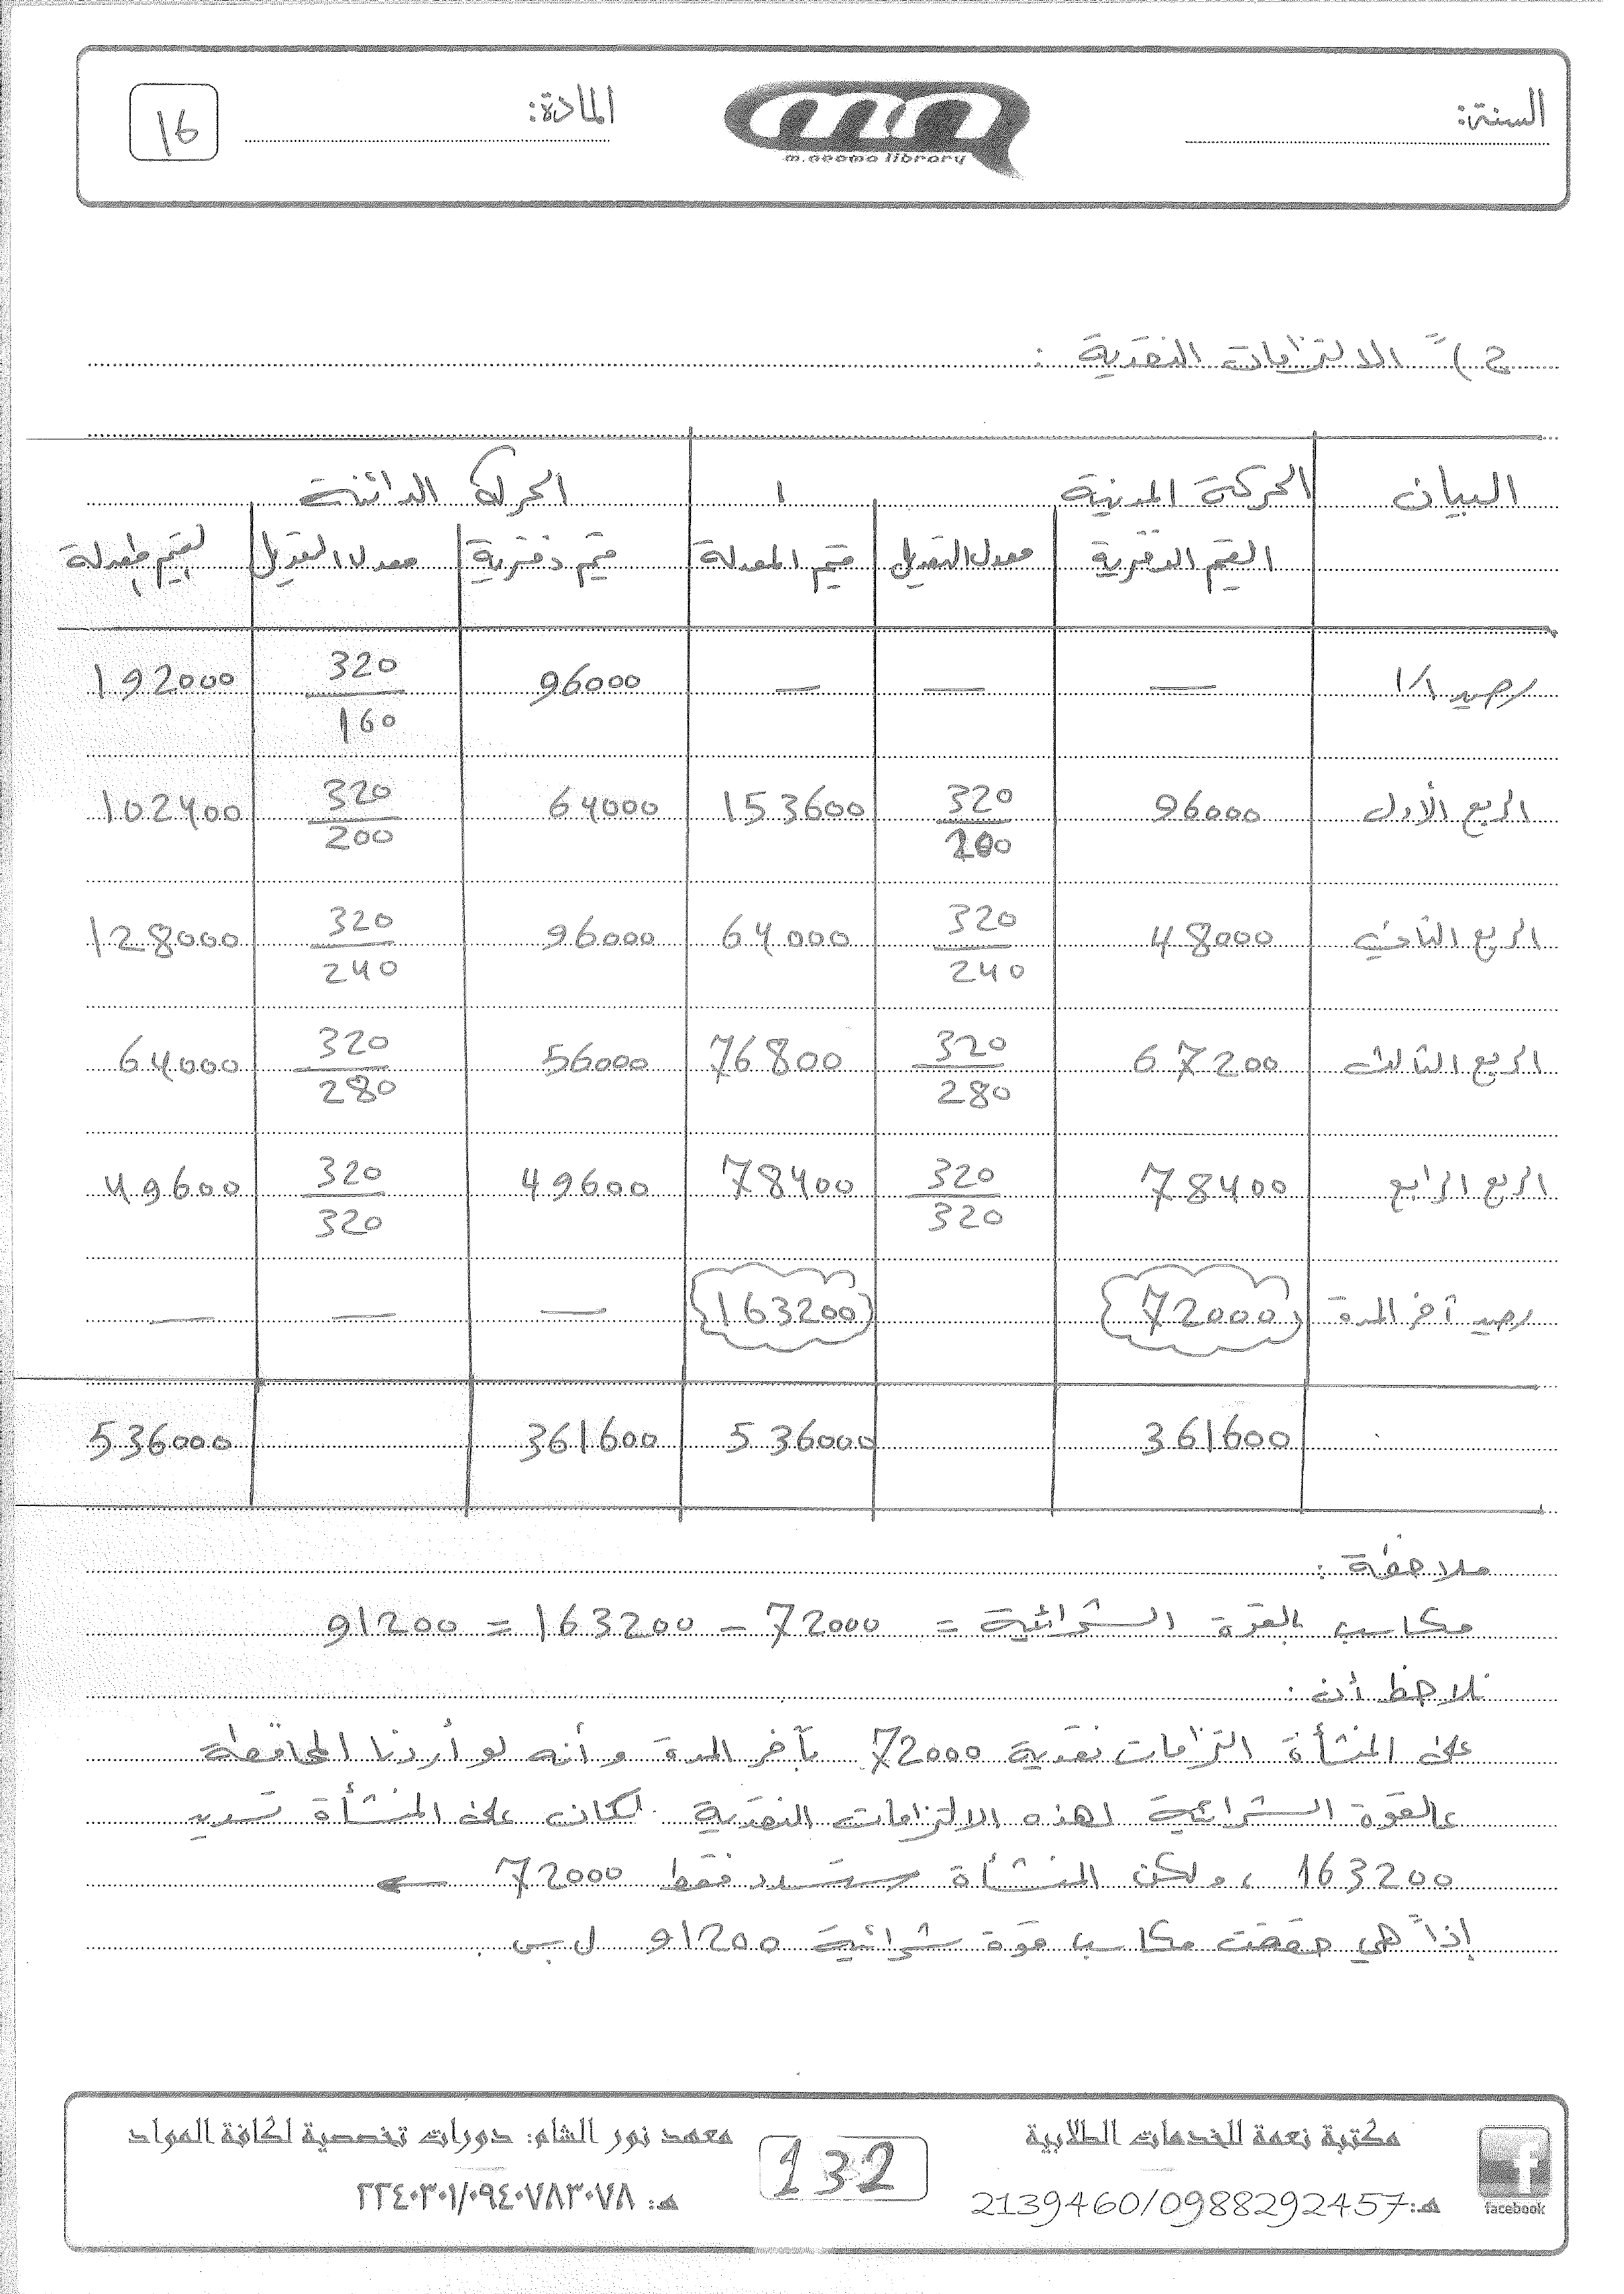 السنة:
m.neama library
المادة:
16
2) ً الالتزامات النقدية :
البيان الحركة المدنية الحركة الدائنة
القيم الدفترية معدل التعديل قيم المعدلة قيم دفترية معدل التعديل قيم معدلة
رصيد 1/1 — — — 96000 320/160 192000
الربع الأول 96000 320/200 153600 64000 320/200 102400
الربع الثاني 48000 320/240 64000 96000 320/240 128000
الربع الثالث 67200 320/280 76800 56000 320/280 64000
الربع الرابع 78400 320/320 78400 49600 320/320 49600
رصيد آخر المدة 72000 163200 — — —
361600 536000 361600 536000
ملاحظة :
مكاسب بالقوة الشرائية = 72000 - 163200 = 91200
نلاحظ أن :
على المنشأة التزامات نقدية 72000 بآخر المدة وأنه لو أردنا المحافظة
عالقوة الشرائية لهذه الالتزامات النقدية لكان على المنشأة تسديد
163200 ، ولكن المنشأة ستسدد فقط 72000 ←
إذاً هي حققت مكاسب قوة شرائية 91200 ل.س .
مكتبة نعمة للخدمات الطلابية
هـ: 2139460/0988292457
facebook
132
معهد نور الشام: دورات تخصصية لكافة المواد
هـ: ٢٢٤٠٣٠١/٠٩٤٠٧٨٣٠٧٨